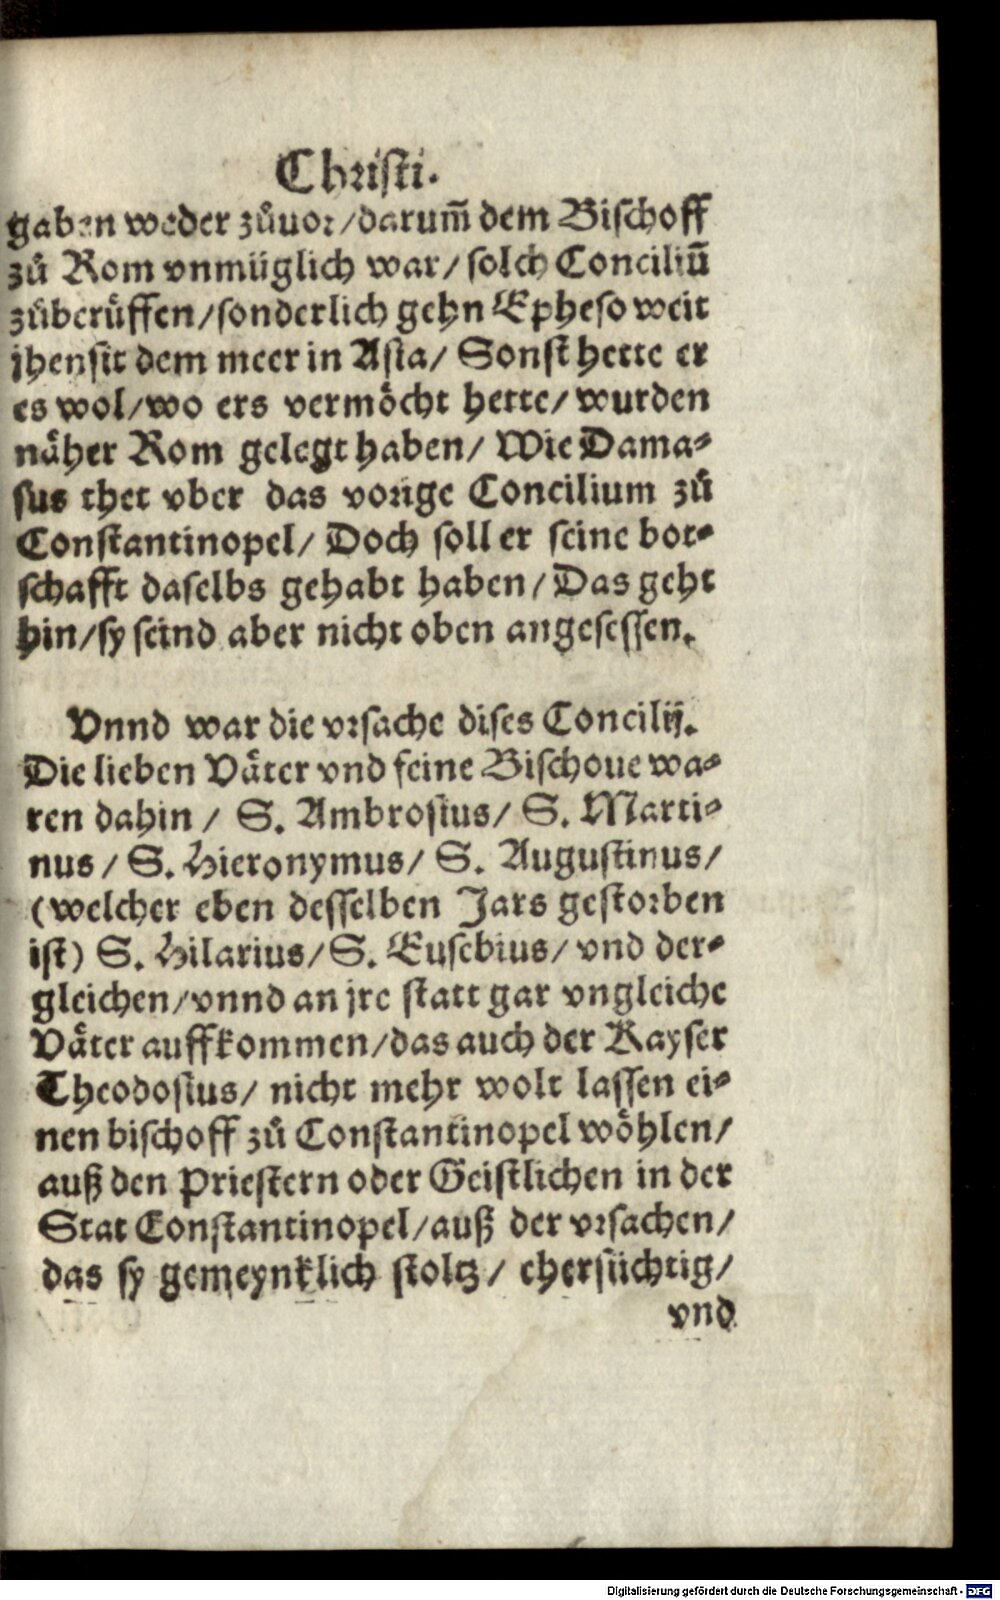 Christi.
gaben weder zůuor/darum̃ dem Bischoff
zů Rom vnmüglich war/ solch Conciliũ
zůberůffen/sonderlich gehn Epheso weit
jhensit dem meer in Asia/ Sonst hette er
es wol/wo ers vermöcht hette/ wurden
näher Rom gelegt haben/ Wie Dama⸗
sus thet vber das vorige Concilium zů
Constantinopel/ Doch soll er seine bot⸗
schafft daselbs gehabt haben/ Das geht
hin/sy seind aber nicht oben angesessen.
Vnnd war die vrsache dises Concilij.
Die lieben Väter vnd feine Bischoue wa⸗
ren dahin / S. Ambrosius/ S. Marti⸗
nus / S. Hieronymus/ S. Augustinus/
(welcher eben desselben Jars gestorben
ist) S. Hilarius/ S. Eusebius/ vnd der⸗
gleichen/vnnd an jre statt gar vngleiche
Väter auffkommen/das auch der Kayser
Theodosius/ nicht mehr wolt lassen ei⸗
nen bischoff zů Constantinopel wöhlen/
auß den Priestern oder Geistlichen in der
Stat Constantinopel/auß der vrsachen/
das sy gemeynklich stoltz / ehersüchtig/
vnd
Digitalisierung gefördert durch die Deutsche Forschungsgemeinschaft - DFG